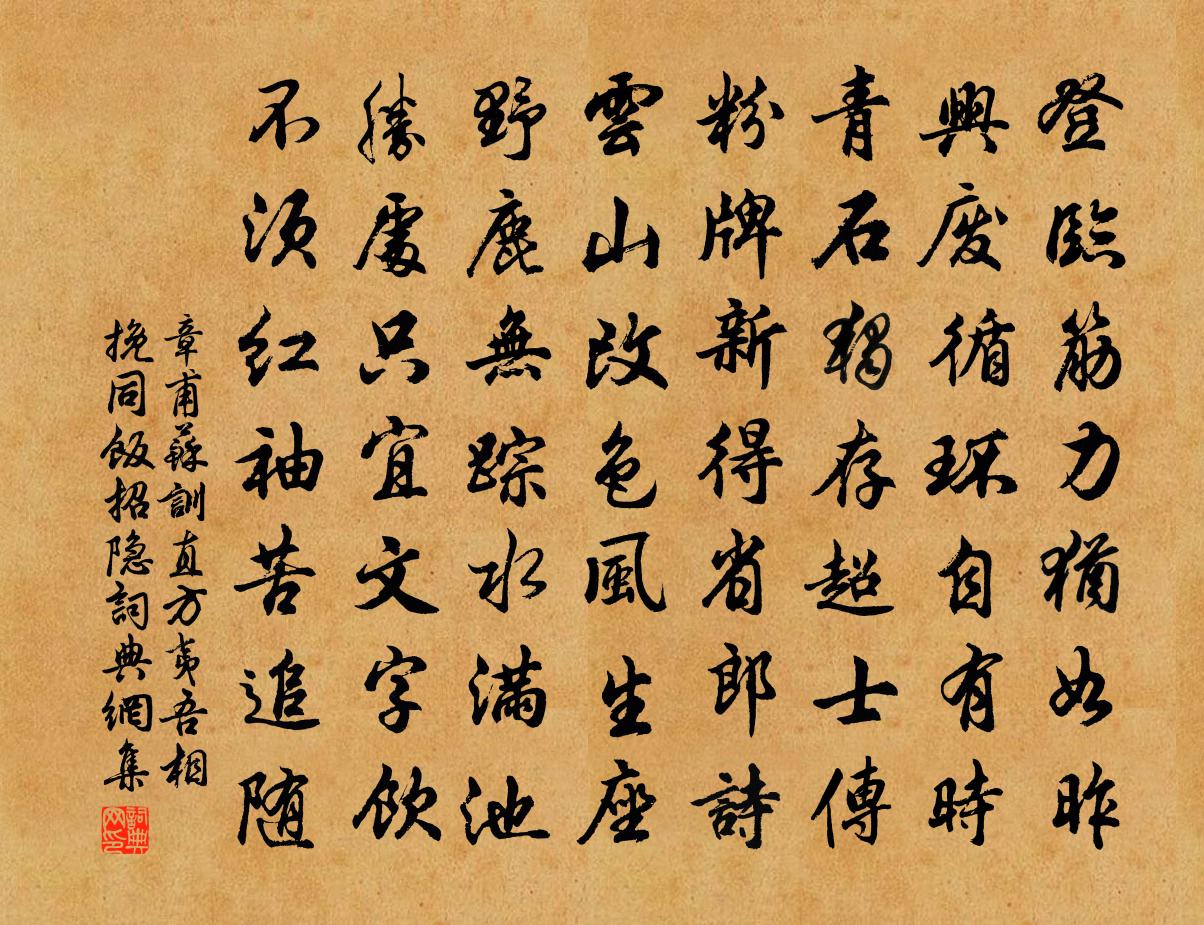 登臨筋力猶如昨
興廢循環自有時
青石獨存超士傳
粉牌新得省郎詩
雲山改色風生座
野鹿無踪水满池
勝處只宜文字飲
不須红袖苦追随
章甫蘇訓直方夷吾相
挽同飯招隐詞典網集
詞典网印